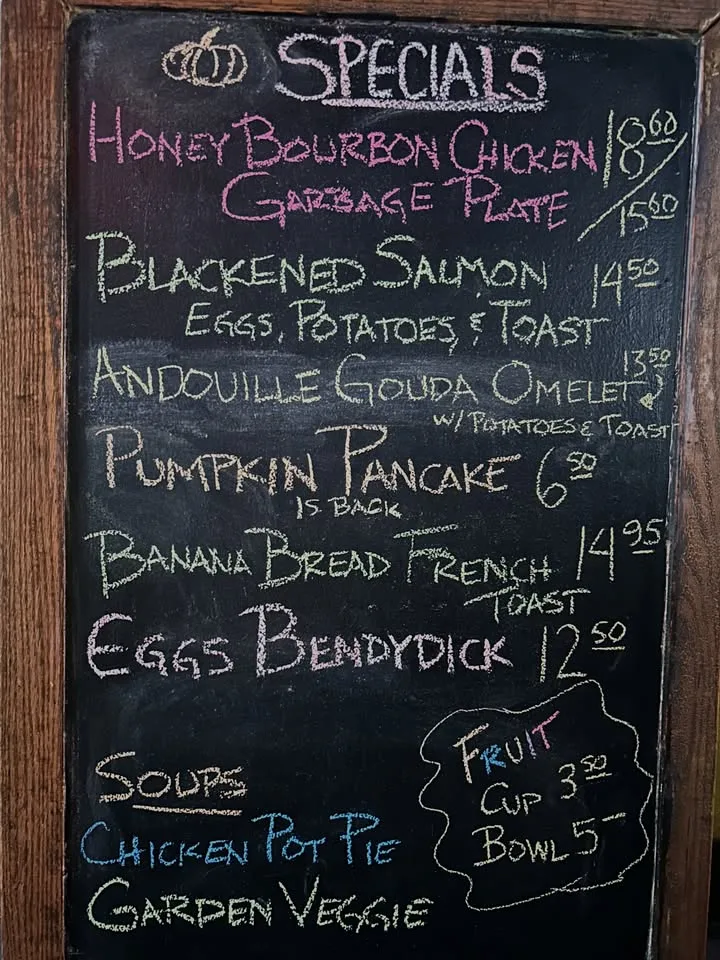 SPECIALS
HONEY BOURBON CHICKEN 18 60/
GARBAGE PLATE 15 60
BLACKENED SALMON 14 50
EGGS, POTATOES, & TOAST
ANDOUILLE GOUDA OMELET 13 50
W/ POTATOES & TOAST
PUMPKIN PANCAKE 6 50
IS BACK
BANANA BREAD FRENCH 14 95
TOAST
EGGS BENDYDICK 12 50
FRUIT
CUP 3 50
BOWL 5 –
SOUPS
CHICKEN POT PIE
GARDEN VEGGIE